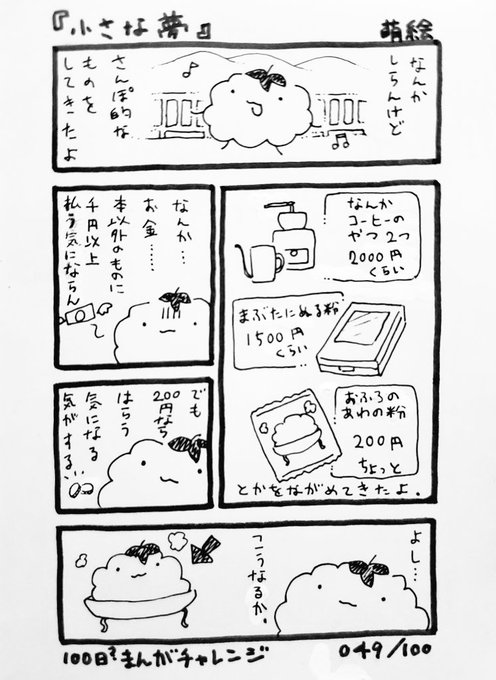 『小さな夢』
萌絵
なんか
しらんけど
さんぽ的な
ものを
してきたよ
なんか
コーヒーの
やつ 2つ
2000円
くらい
まぶたにぬる粉
1500円
くらい
おふろの
あわの粉
200円
ちょっと
とかをながめてきたよ.
なんか…
お金……
本以外のものに
千円以上
払う気にならん
でも
200円なら
はらう
気になる
気がする…
よし…
こうなるか.
100日?まんがチャレンジ
049/100